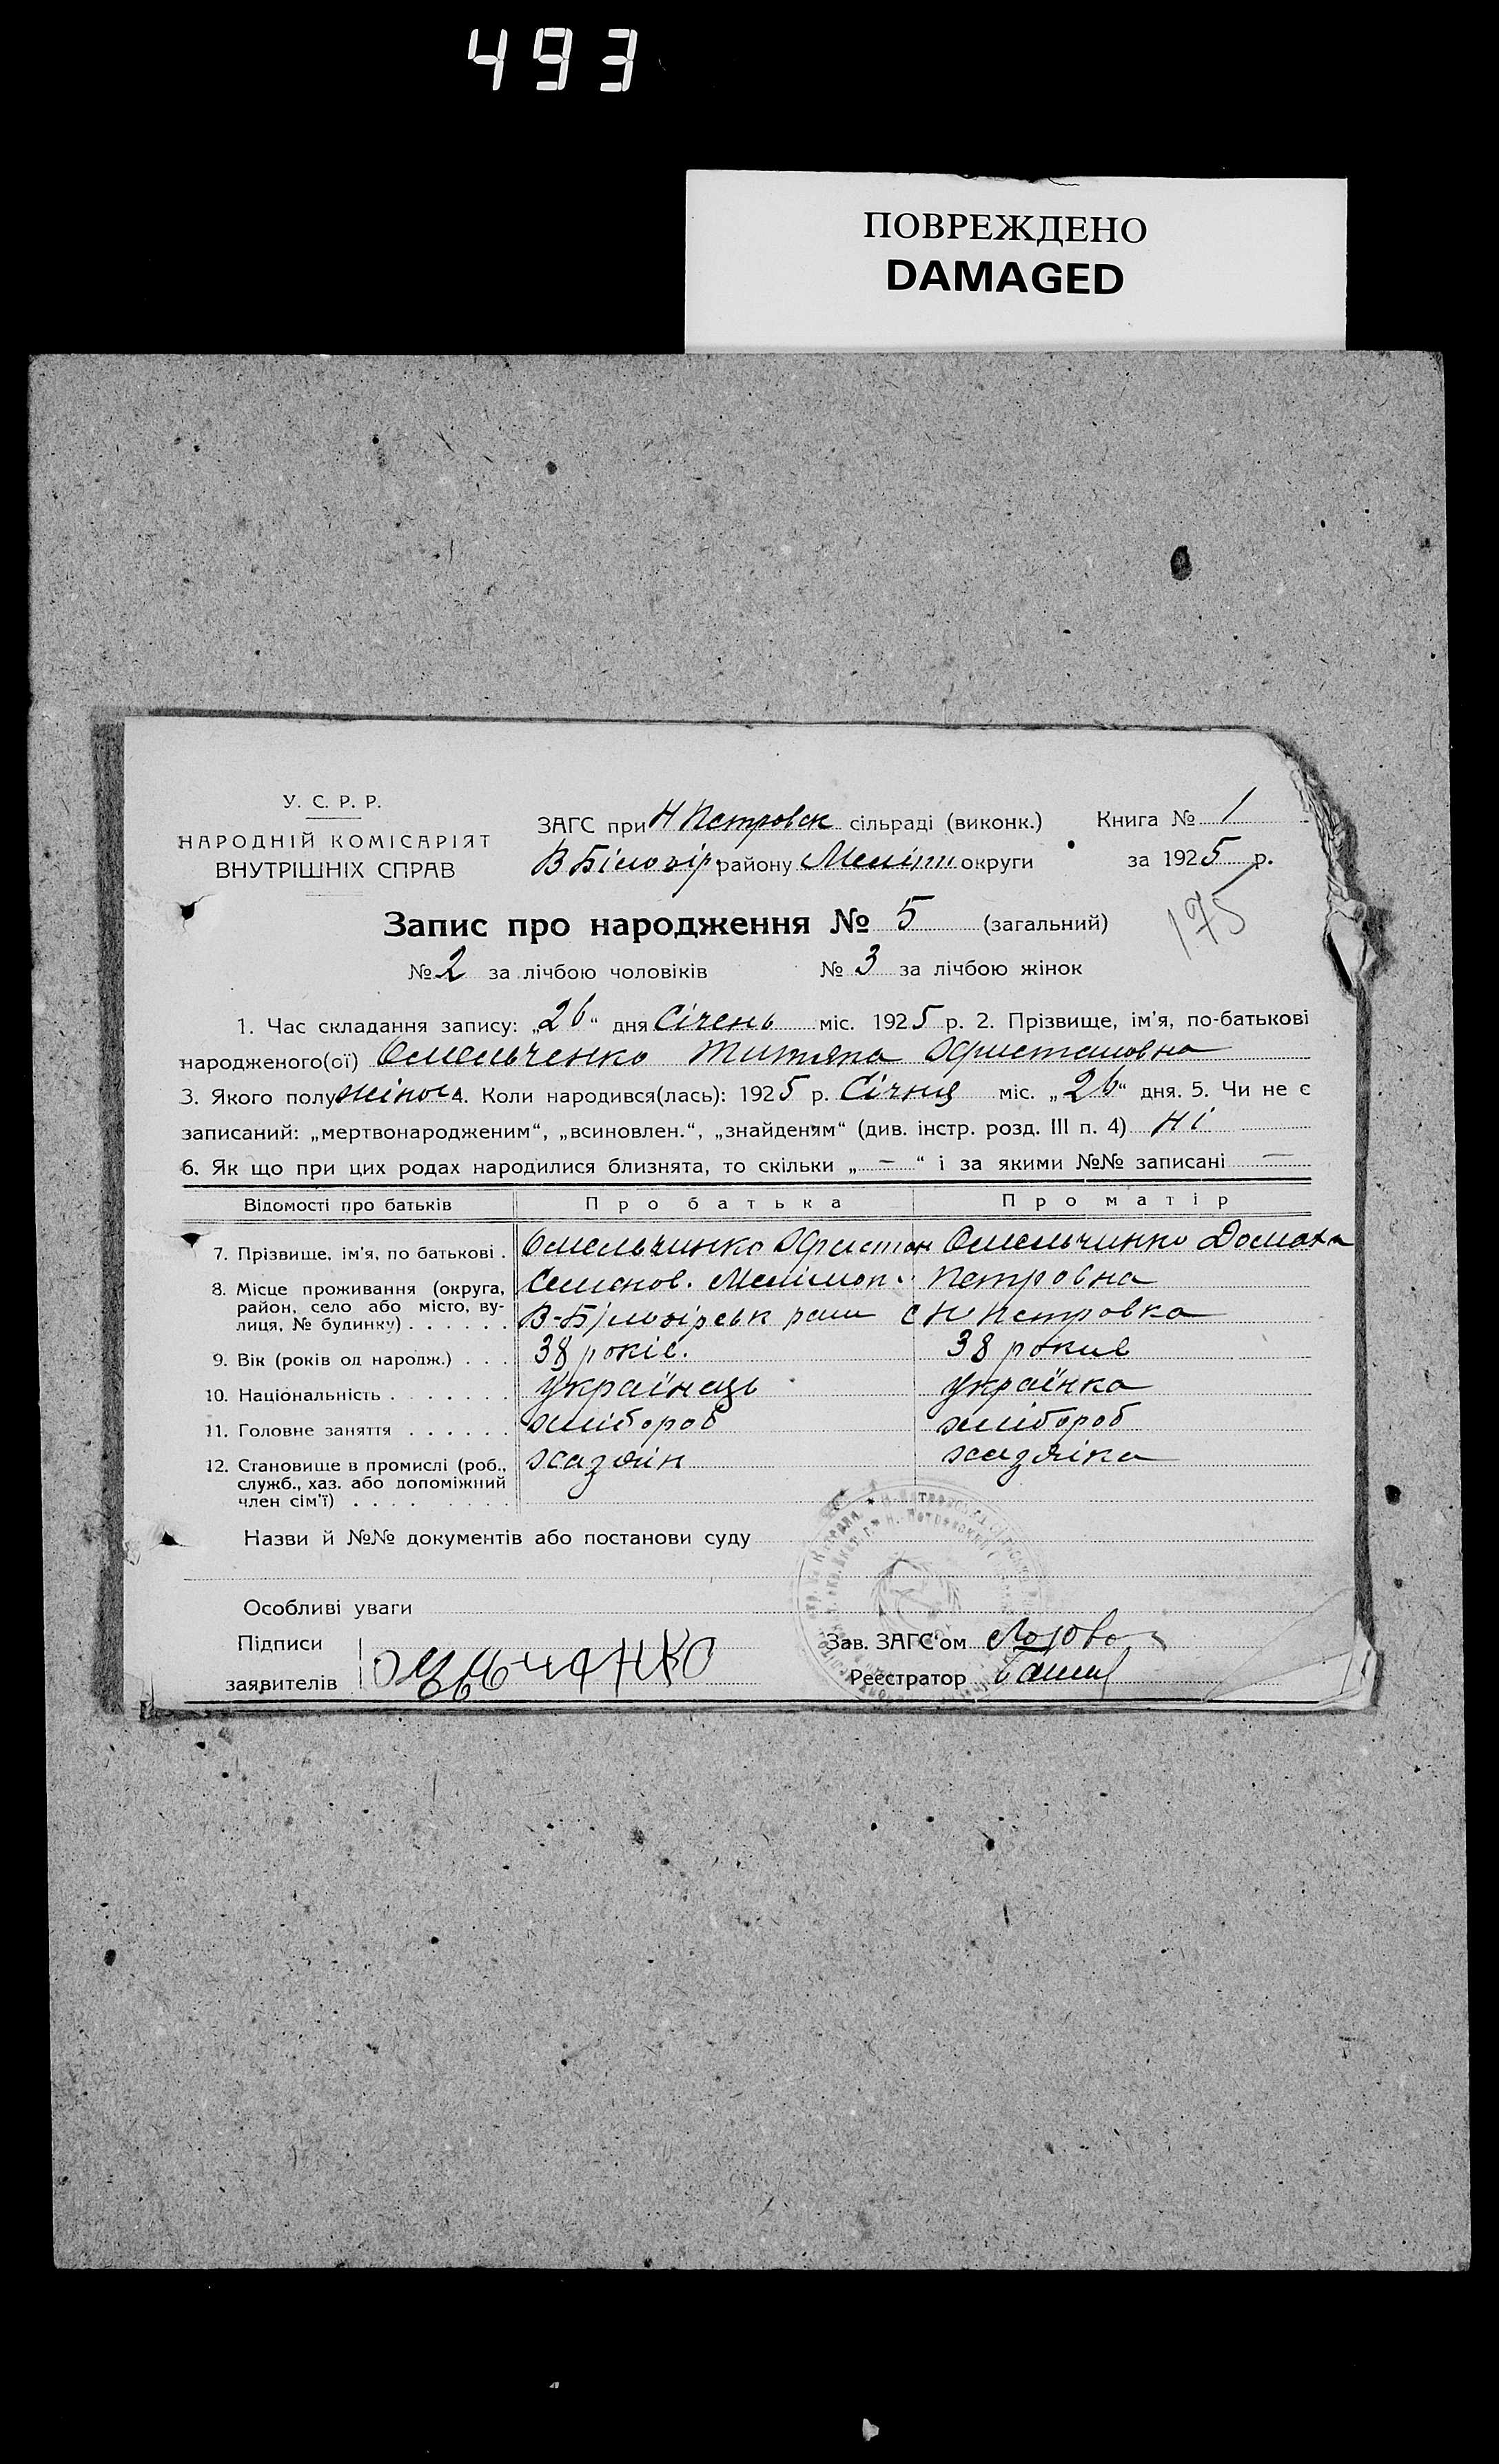 493
ПОВРЕЖДЕНО
DAMAGED
У. С. Р. Р.
НАРОДНІЙ КОМІСАРІЯТ
ВНУТРІШНІХ СПРАВ
ЗАГС при Н Петровск сільраді (виконк.)
В Білозір району Меліт округи
Книга № 1
за 1925 р.
175
Запис про народження № 5 (загальний)
№ 2 за лічбою чоловіків № 3 за лічбою жінок
1. Час складання запису: „26“ дня Січень міс. 1925 р. 2. Прізвище, ім'я, по-батькові
народженого(ої) Омельченко Титяна Христановна
3. Якого полу жіноч 4. Коли народився(лась): 1925 р. Січня міс. „26“ дня. 5. Чи не є
записаний: „мертвонародженим“, „всиновлен.“, „знайденим“ (див. інстр. розд. III п. 4) Ні
6. Як що при цих родах народилися близнята, то скільки „ — “ і за якими №№ записані —
Відомості про батьків Про батька Про матір
7. Прізвище, ім'я, по батькові . Омельчинко Христан Омельчинко Домаха
8. Місце проживання (округа, Семенов. Мелітоп. Петровна
район, село або місто, ву-
лиця, № будинку) . . . . . . В-Білозірськ раи с Н Петровка
9. Вік (років од народж.) . . . 38 років. 38 рокив
10. Національність . . . . . . . українаць українка
11. Головне заняття . . . . . . хлібороб хлібороб
12. Становище в промислі (роб., хазяїн хазяіка
служб., хаз. або допоміжний
член сім'ї) . . . . . . . .
Назви й №№ документів або постанови суду
Особливі уваги
Підписи
заявителів
Зав. ЗАГС'ом
Реєстратор